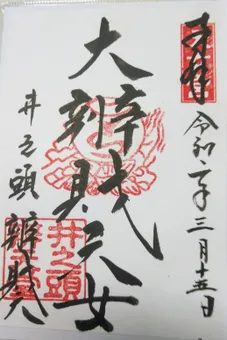 奉拝
令和二年三月十五日
大辨財天女
井之頭辨財天
井之頭